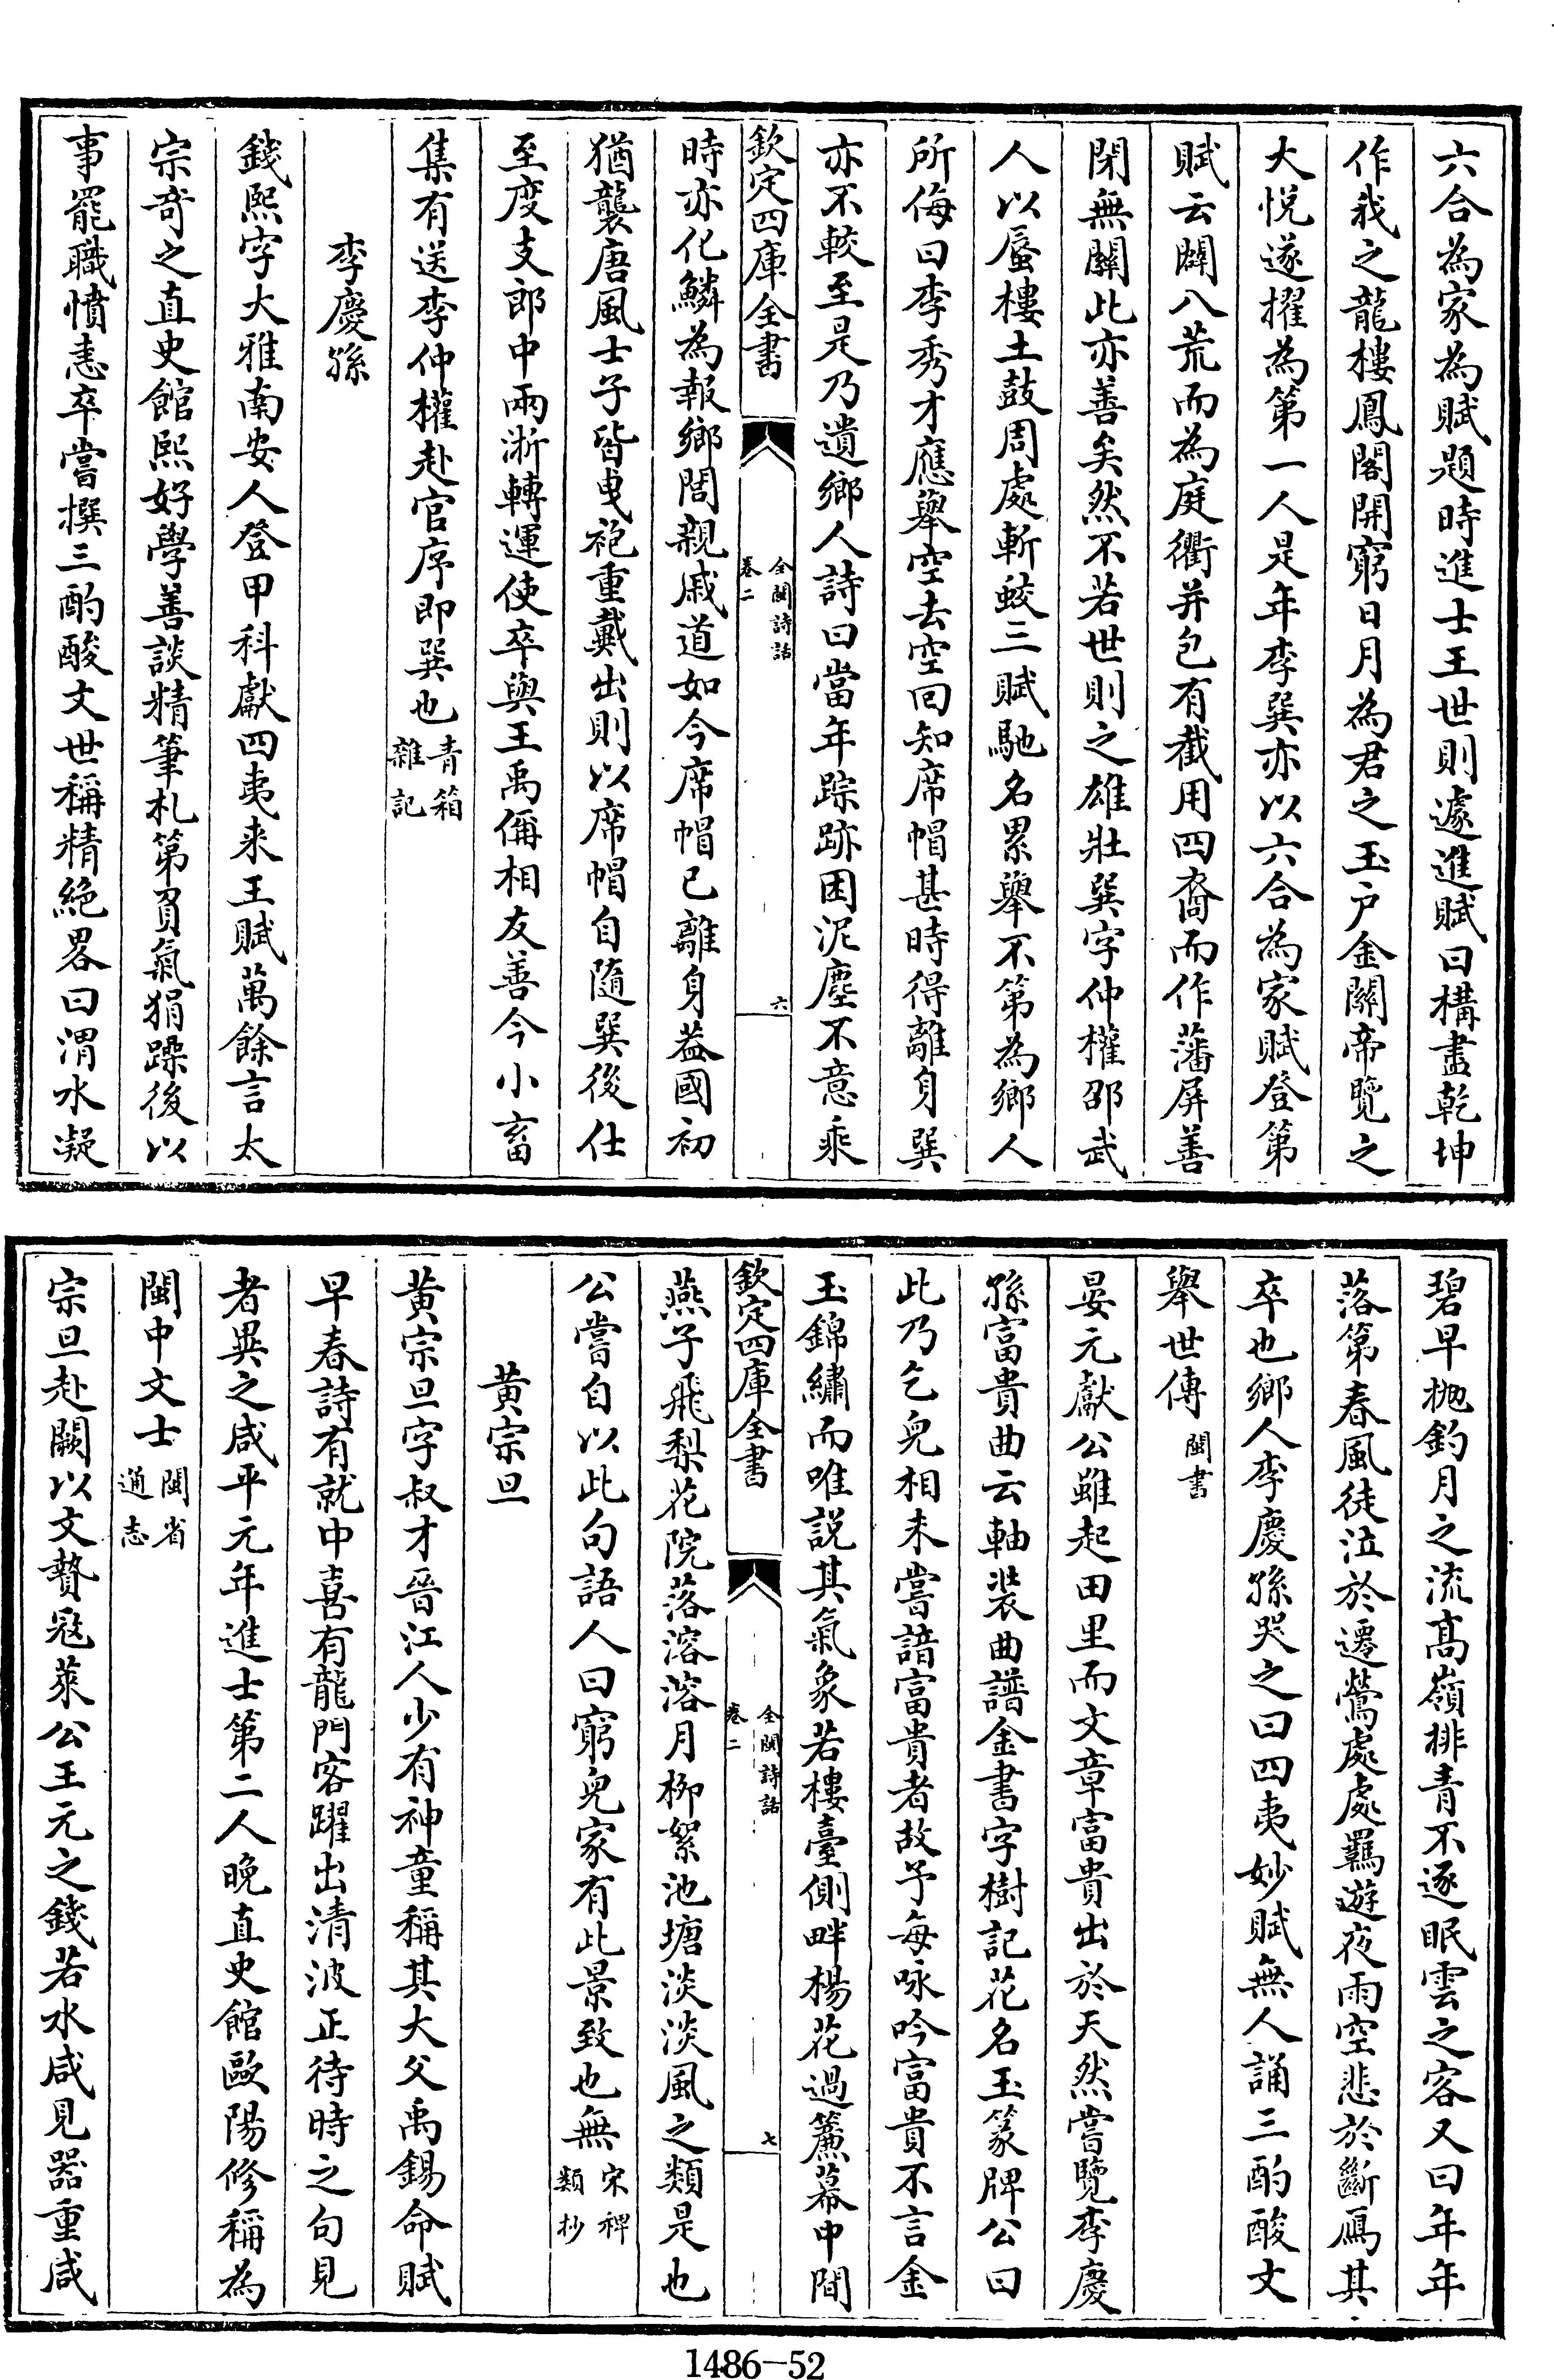 六合為家為賦題時進士王世則遽進賦曰構盡乾坤
作我之龍樓鳳閣開窮日月為君之玉户金關帝覽之
大悦遂擢為第一人是年李巽亦以六合為家賦登第
賦云闢八荒而為庭衢并包有截用四裔而作藩屏善
閉無關此亦善矣然不若世則之雄壯巽字仲權邵武
人以蜃樓土鼓周處斬蛟三賦馳名累舉不第為鄉人
所侮曰李秀才應舉空去空回知席帽甚時得離身巽
亦不較至是乃遺鄉人詩曰當年踪跡困泥塵不意乘
欽定四庫全書
全閩詩話
卷二
六
時亦化鱗為報鄉閭親戚道如今席帽已離身蓋國初
猶襲唐風士子皆曳袍重戴出則以席帽自隨巽後仕
至度支郎中兩浙轉運使卒與王禹偁相友善今小畜
集有送李仲權赴官序即巽也青箱
雜記
李慶孫
錢熙字大雅南安人登甲科獻四夷來王賦萬餘言太
宗奇之直史館熙好學善談精筆札第負氣狷躁後以
事罷職憤恚卒嘗撰三酌酸文世稱精絶畧曰渭水凝
碧早抛釣月之流髙嶺排青不逐眠雲之客又曰年年
落第春風徒泣於遷鶯處處羈遊夜雨空悲於斷鴈其
卒也鄉人李慶孫哭之曰四夷妙賦無人誦三酌酸文
舉世傳閩書
晏元獻公雖起田里而文章富貴出於天然嘗覽李慶
孫富貴曲云軸装曲譜金書字樹記花名玉篆牌公曰
此乃乞兒相未嘗諳富貴者故予每咏吟富貴不言金
玉錦繡而唯説其氣象若樓臺側畔楊花過簾幕中間
欽定四庫全書
全閩詩話
卷二
七
燕子飛梨花院落溶溶月栁絮池塘淡淡風之類是也
公嘗自以此句語人曰窮兒家有此景致也無宋稗
類抄
黄宗旦
黄宗旦字叔才晉江人少有神童稱其大父禹錫命賦
早春詩有就中喜有龍門客躍出清波正待時之句見
者異之咸平元年進士第二人晚直史館歐陽修稱為
閩中文士閩省
通志
宗旦赴闕以文贄宼萊公王元之錢若水咸見器重咸
1486-52